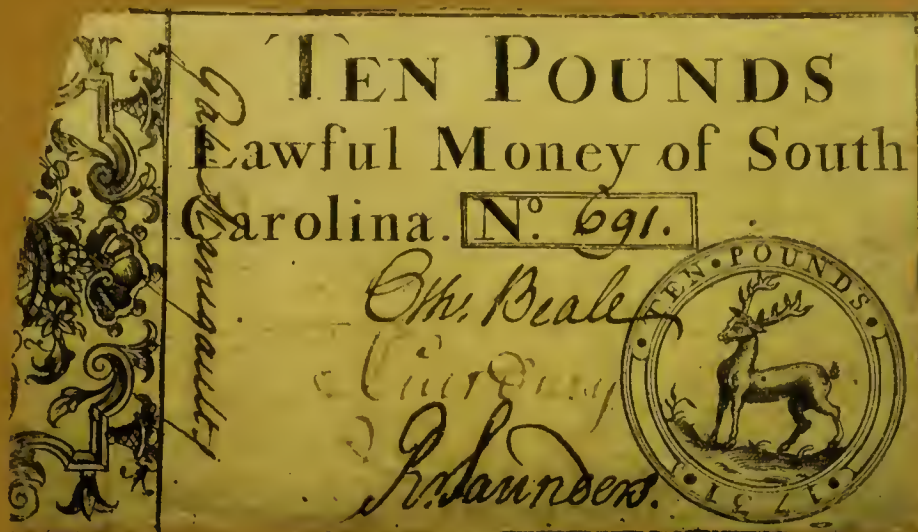 TEN POUNDS
Lawful Money of South
Carolina. No. 691.
Othr. Beale
R. Saunders.
TEN • POUNDS
• 1731 •